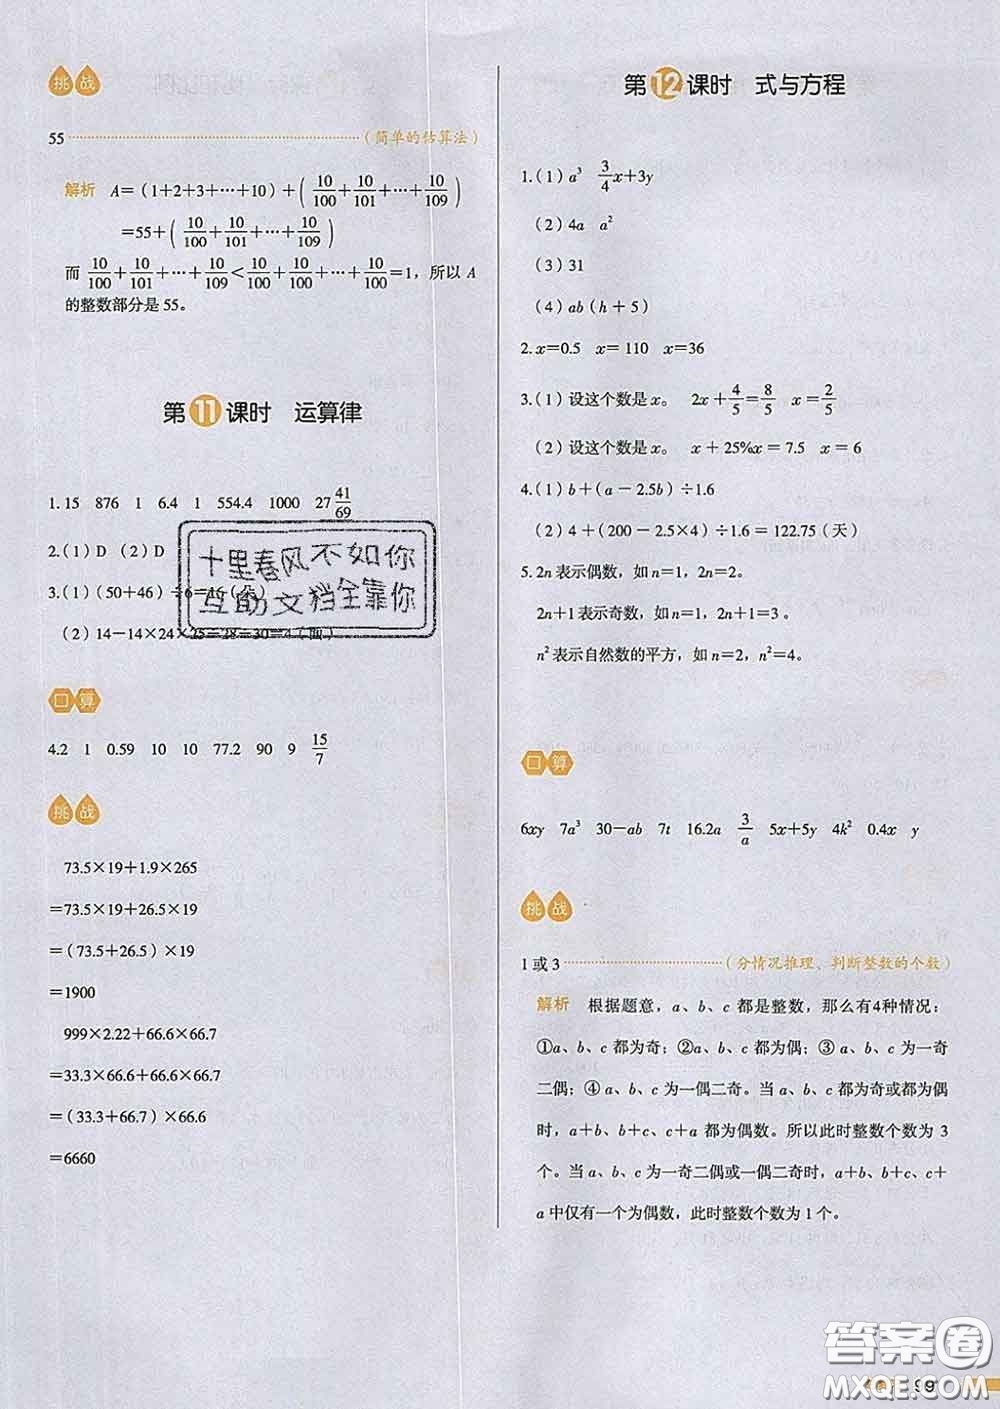 挑战
55 (简单的估算法)
解析 A=(1+2+3+…+10)+(10/100+10/101+…+10/109)
=55+(10/100+10/101+…+10/109)
而 10/100+10/101+…+10/109<10/100+10/100+…+10/100=1，所以 A
的整数部分是 55。
第11课时 运算律
1.15 876 1 6.4 1 554.4 1000 27 41/69
2.(1)D (2)D
3.(1)(50+46)÷6=16(朵)
(2)14-14×24×25=28=30=4(面)
十里春风不如你
互助文档全靠你
口算
4.2 1 0.59 10 10 77.2 90 9 15/7
挑战
73.5×19+1.9×265
=73.5×19+26.5×19
=(73.5+26.5)×19
=1900
999×2.22+66.6×66.7
=33.3×66.6+66.6×66.7
=(33.3+66.7)×66.6
=6660
第12课时 式与方程
1.(1)a³ 3/4x+3y
(2)4a a²
(3)31
(4)ab(h+5)
2.x=0.5 x=110 x=36
3.(1)设这个数是 x。 2x+4/5=8/5 x=2/5
(2)设这个数是 x。 x+25%x=7.5 x=6
4.(1)b+(a-2.5b)÷1.6
(2)4+(200-2.5×4)÷1.6=122.75(天)
5.2n 表示偶数，如 n=1，2n=2。
2n+1 表示奇数，如 n=1，2n+1=3。
n²表示自然数的平方，如 n=2，n²=4。
口算
6xy 7a³ 30-ab 7t 16.2a 3/a 5x+5y 4k² 0.4x y
挑战
1 或 3 (分情况推理、判断整数的个数)
解析 根据题意，a、b、c 都是整数，那么有4种情况：
①a、b、c 都为奇；②a、b、c 都为偶；③ a、b、c 为一奇
二偶；④ a、b、c 为一偶二奇。当 a、b、c 都为奇或都为偶
时，a+b、b+c、c+a 都为偶数。所以此时整数个数为 3
个。当 a、b、c 为一奇二偶或一偶二奇时，a+b、b+c、c+
a 中仅有一个为偶数，此时整数个数为 1 个。
答案圈
MXQE.COM
99